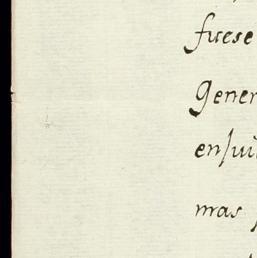 fuese
gener
enjui
mas